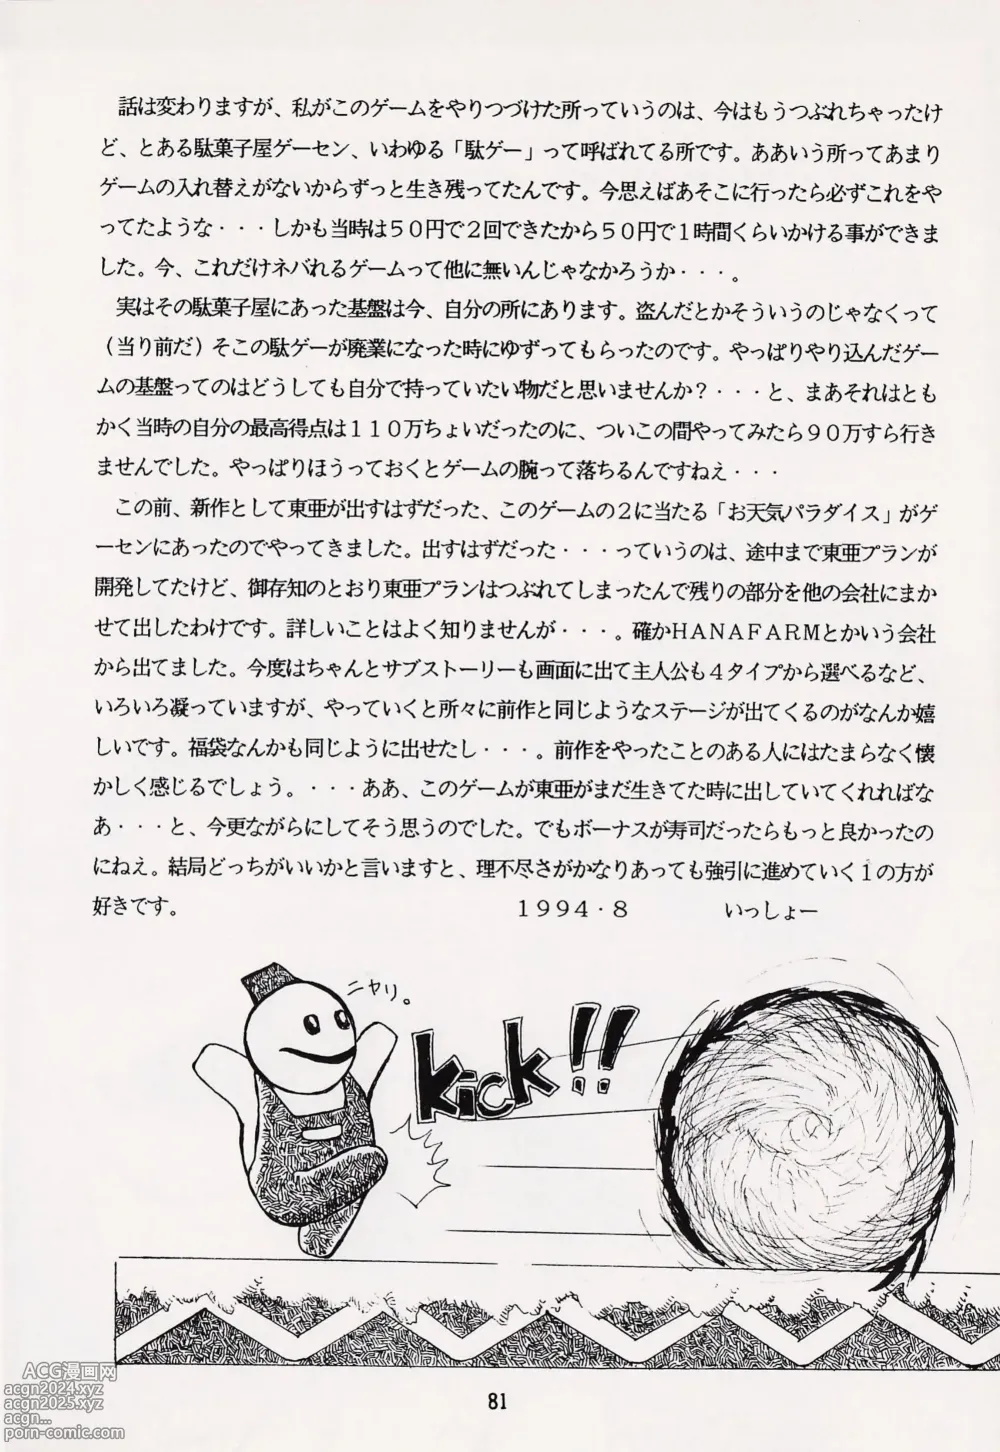 話は変わりますが、私がこのゲームをやりつづけた所っていうのは、今はもうつぶれちゃったけ
ど、とある駄菓子屋ゲーセン、いわゆる「駄ゲー」って呼ばれてる所です。ああいう所ってあまり
ゲームの入れ替えがないからずっと生き残ってたんです。今思えばあそこに行ったら必ずこれをや
ってたような・・・しかも当時は50円で2回できたから50円で1時間くらいかける事ができま
した。今、これだけネバれるゲームって他に無いんじゃなかろうか・・・。
実はその駄菓子屋にあった基盤は今、自分の所にあります。盗んだとかそういうのじゃなくって
(当り前だ)そこの駄ゲーが廃業になった時にゆずってもらったのです。やっぱりやり込んだゲー
ムの基盤ってのはどうしても自分で持っていたい物だと思いませんか?・・・と、まあそれはとも
かく当時の自分の最高得点は110万ちょいだったのに、ついこの間やってみたら90万すら行き
ませんでした。やっぱりほうっておくとゲームの腕って落ちるんですねえ・・・
この前、新作として東亜が出すはずだった、このゲームの2に当たる「お天気パラダイス」がゲ
ーセンにあったのでやってきました。出すはずだった・・・っていうのは、途中まで東亜プランが
開発してたけど、御存知のとおり東亜プランはつぶれてしまったんで残りの部分を他の会社にまか
せて出したわけです。詳しいことはよく知りませんが・・・。確かHANAFARMとかいう会社
から出てました。今度はちゃんとサブストーリーも画面に出て主人公も4タイプから選べるなど、
いろいろ凝っていますが、やっていくと所々に前作と同じようなステージが出てくるのがなんか嬉
しいです。福袋なんかも同じように出せたし・・・。前作をやったことのある人にはたまらなく懐
かしく感じるでしょう。・・・ああ、このゲームが東亜がまだ生きてた時に出していてくれればな
あ・・・と、今更ながらにしてそう思うのでした。でもボーナスが寿司だったらもっと良かったの
にねえ。結局どっちがいいかと言いますと、理不尽さがかなりあっても強引に進めていく1の方が
好きです。 1994・8 いっしょー
ニヤリ。
kick!!
81
ACG漫画网
acgn2024.xyz
acgn2025.xyz
acgn...
porn-comic.com